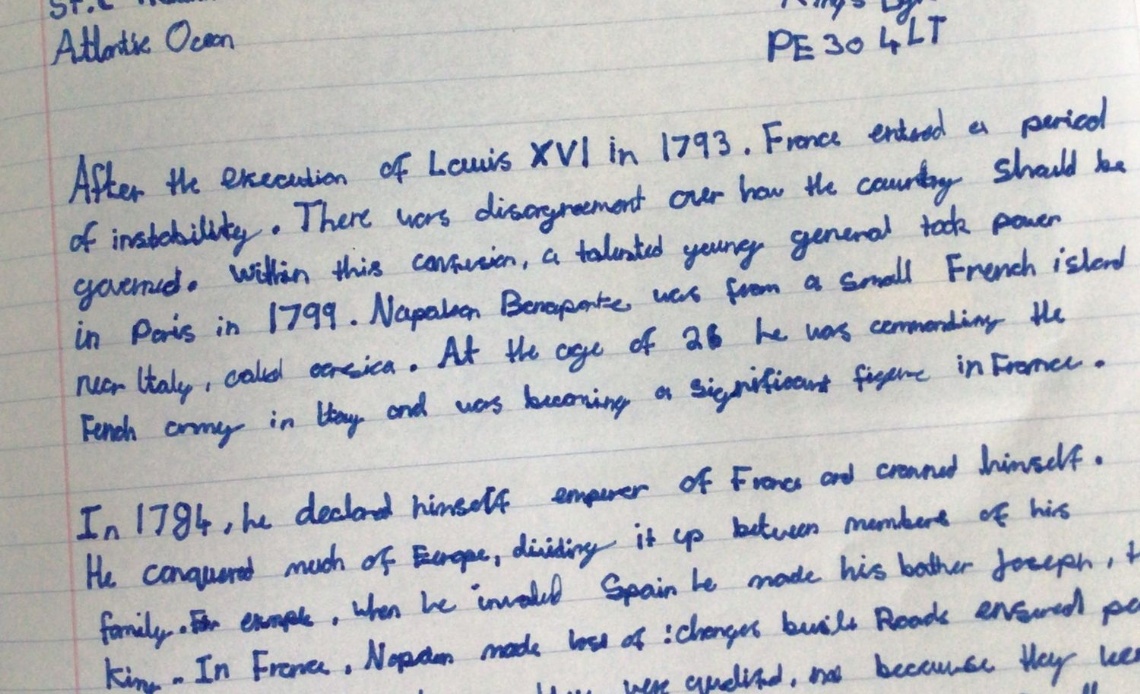 Atlantic Ocean
PE30 4LT
After the execution of Louis XVI in 1793. France entered a period
of instability. There was disagreement over how the country should be
governed. Within this confusion, a talented young general took power
in Paris in 1799. Napoleon Bonaparte was from a small French island
near Italy, called corsica. At the age of 26 he was commanding the
Fench army in Itay and was becoming a significant figure in France.
In 1784, he declared himself emperer of France and crowned himself.
He conquered much of Europe, dividing it up between members of his
family. For example, when he invaded Spain he made his bother Joseph,
king. In France, Napoleon made lose of : changes built Roads ensured
were qualified, not because they